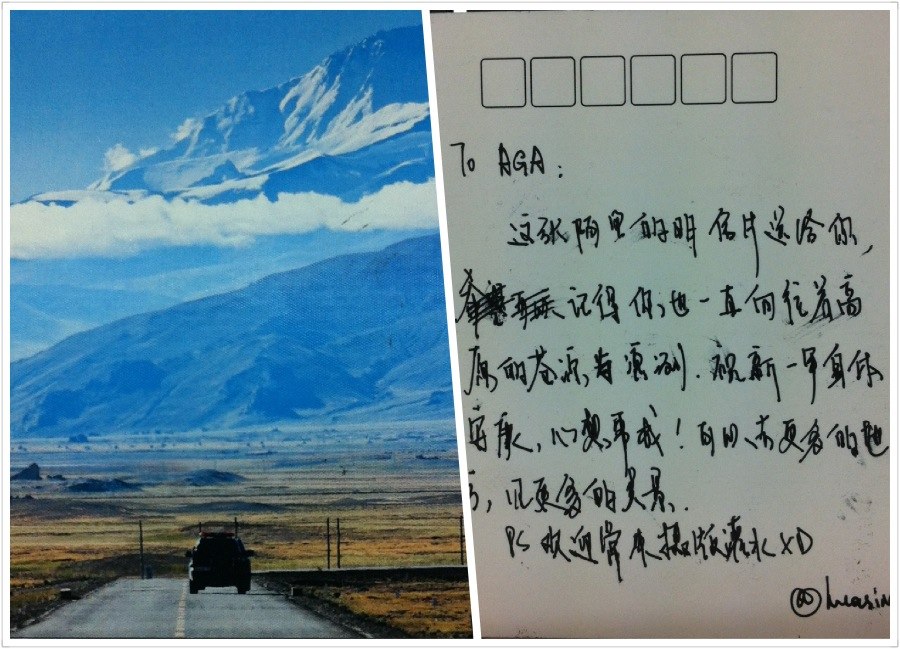 To AGA:
这张阿里的明信片送给你,
记得你也一直向往着高
原的苍凉与凛冽.祝新一年身体
安康,心想事成!可以去更多的地
方,见更多的美景.
PS 欢迎常来摄版灌水XD